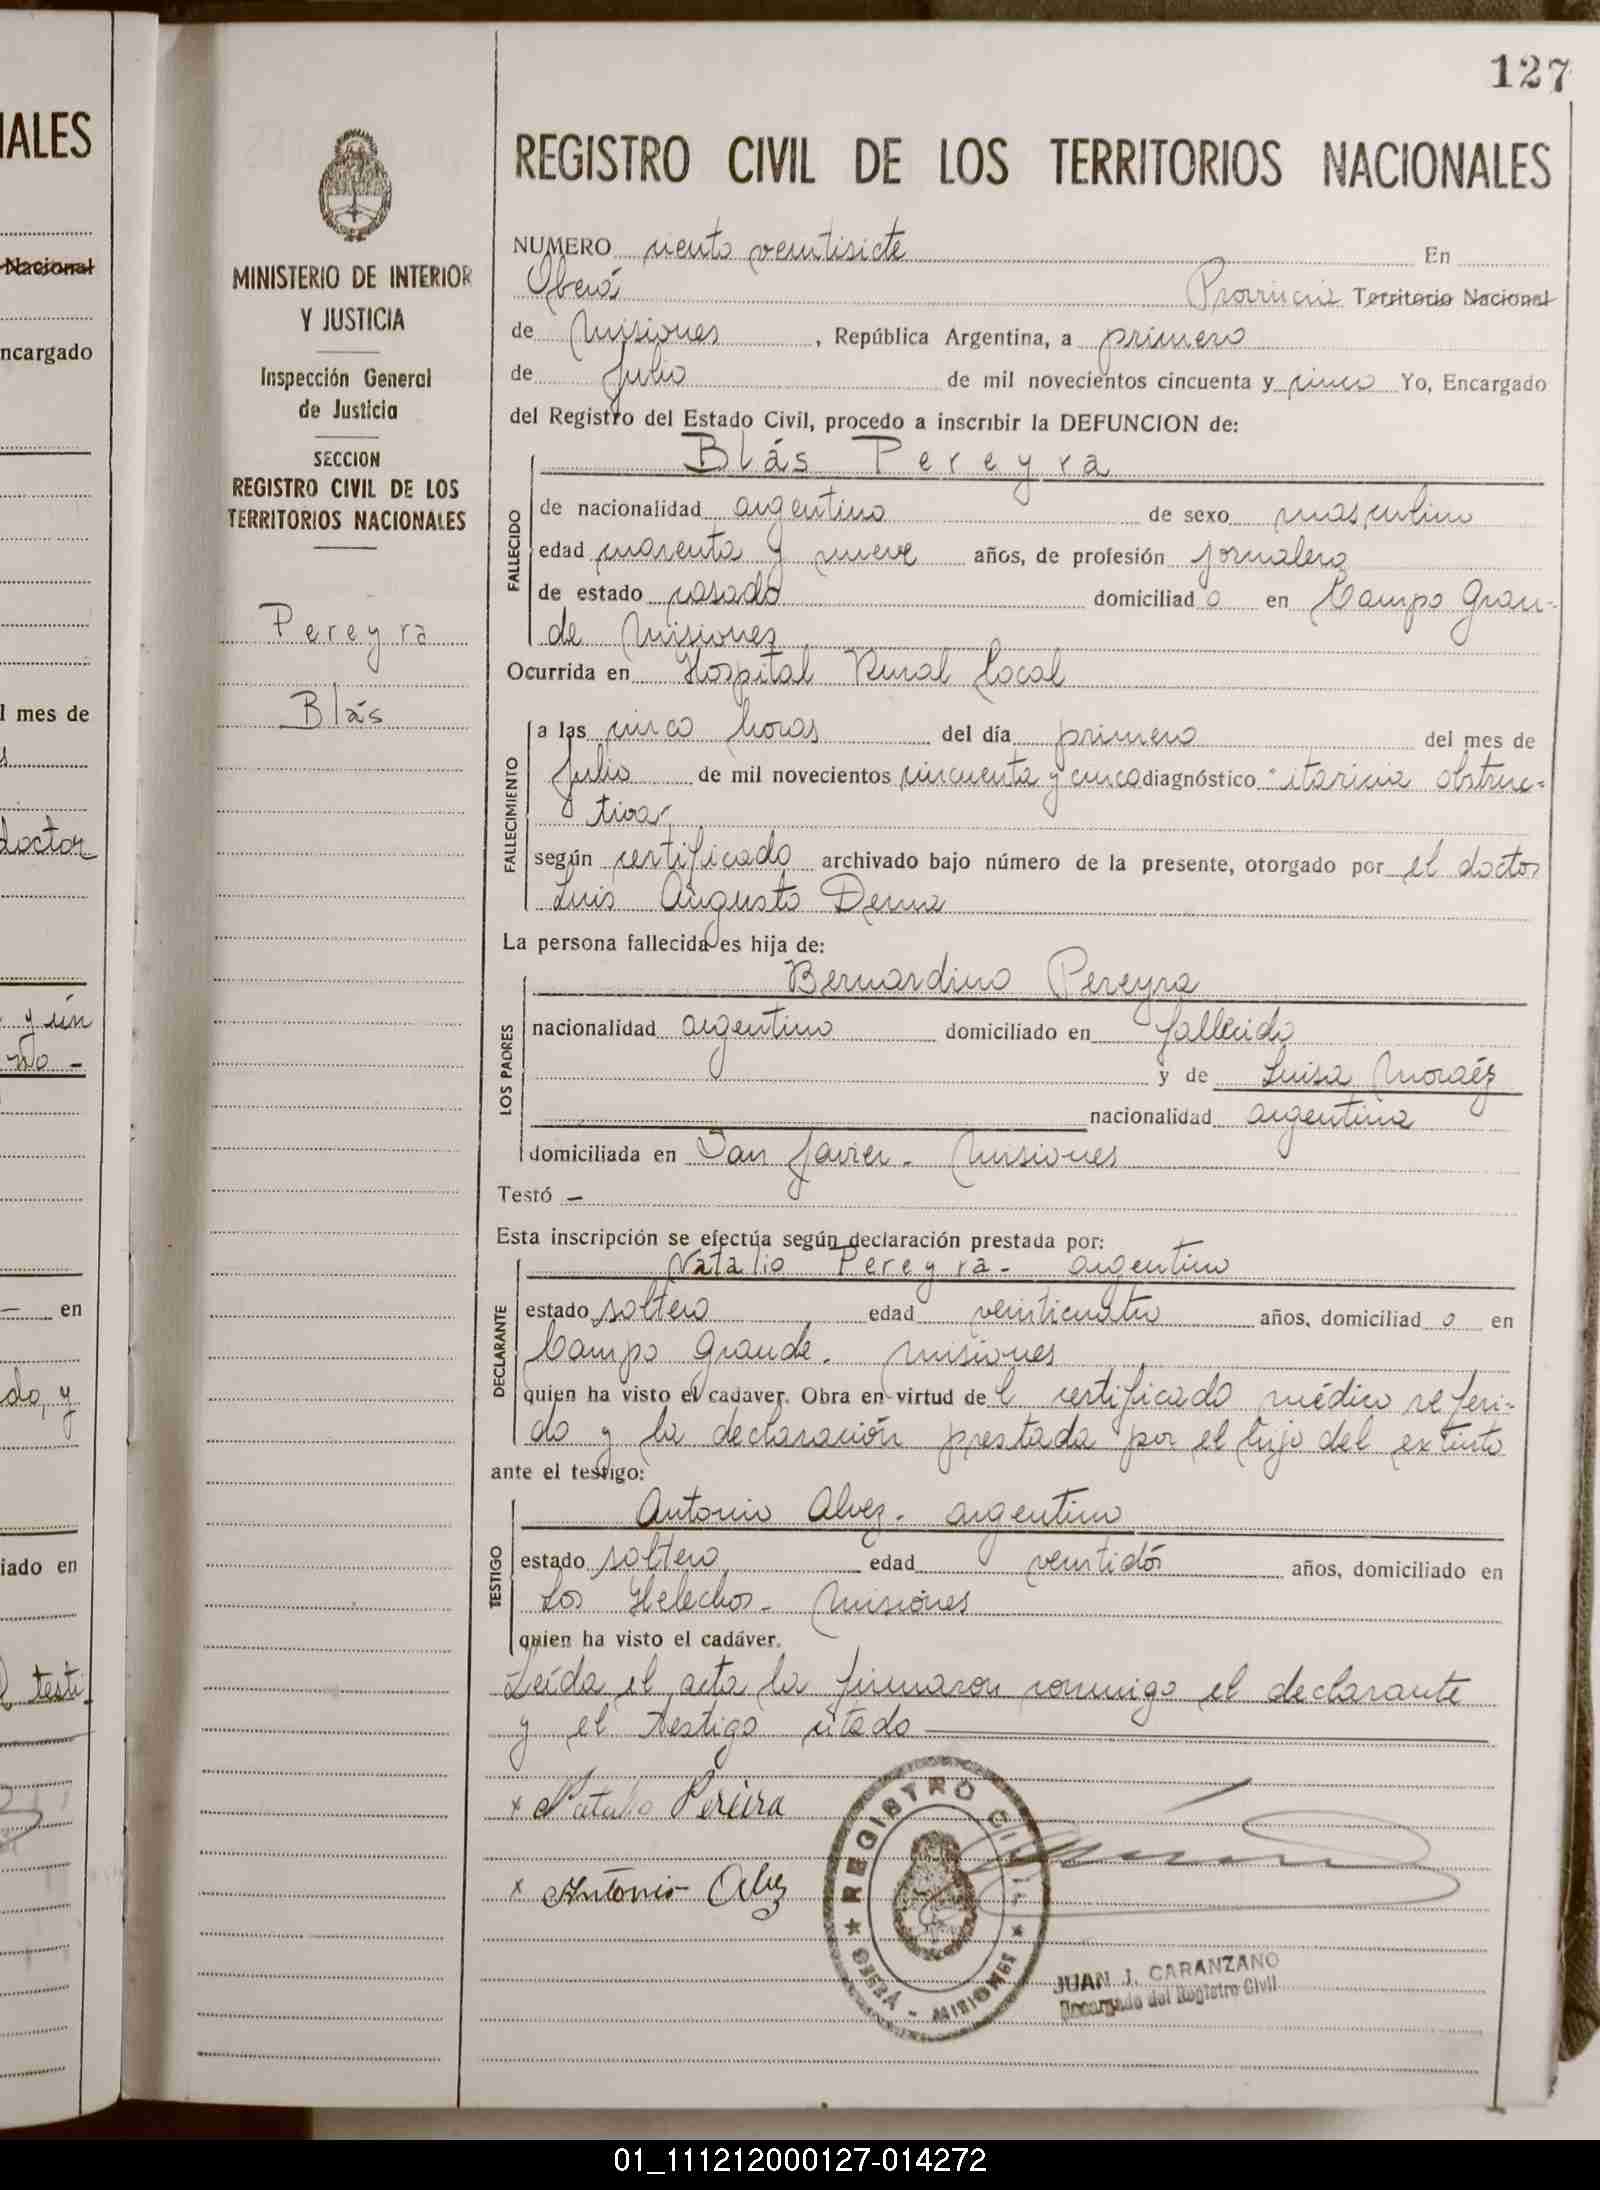 127
IALES
Nacional
ncargado
l mes de
doctor
y ún
en
do, y
iado en
testi-
MINISTERIO DE INTERIOR
Y JUSTICIA
Inspección General
de Justicia
SECCION
REGISTRO CIVIL DE LOS
TERRITORIOS NACIONALES
Pereyra
Blás
REGISTRO CIVIL DE LOS TERRITORIOS NACIONALES
NUMERO ciento veintisiete En
Oberá Provincia Territorio Nacional
de Misiones, República Argentina, a primero
de Julio de mil novecientos cincuenta y cinco Yo, Encargado
del Registro del Estado Civil, procedo a inscribir la DEFUNCION de:
Blás Pereyra
FALLECIDO
de nacionalidad argentino de sexo masculino
edad cuarenta y nueve años, de profesión jornalero
de estado casado domiciliado en Campo Gran-
de Misiones
Ocurrida en Hospital Rural local
FALLECIMIENTO
a las cinco horas del día primero del mes de
Julio de mil novecientos cincuenta y cinco diagnóstico itaricia obstruc-
tiva-
según certificado archivado bajo número de la presente, otorgado por el doctor
Luis Augusto Derna
La persona fallecida es hija de:
LOS PADRES
Bernardino Pereyra
nacionalidad argentino domiciliado en fallecido
y de Luisa Moraéz
nacionalidad argentina
domiciliada en San Javier - Misiones
Testó -
Esta inscripción se efectúa según declaración prestada por:
DECLARANTE
Natalio Pereyra - argentino
estado soltero edad veinticuatro años, domiciliado en
Campo Grande. Misiones
quien ha visto el cadaver. Obra en virtud del certificado médico referi-
do y la declaración prestada por el hijo del extinto
ante el testigo:
TESTIGO
Antonio Alvez - argentino
estado soltero edad veintidós años, domiciliado en
Los Helechos - Misiones
quien ha visto el cadáver.
Leída el acta la firmaron conmigo el declarante
y el testigo citado
x Natalio Pereira
x Antonio Alvez
REGISTRO CIVIL
OBERÁ - MISIONES
JUAN J. CARANZANO
Encargado del Registro Civil
01_111212000127-014272